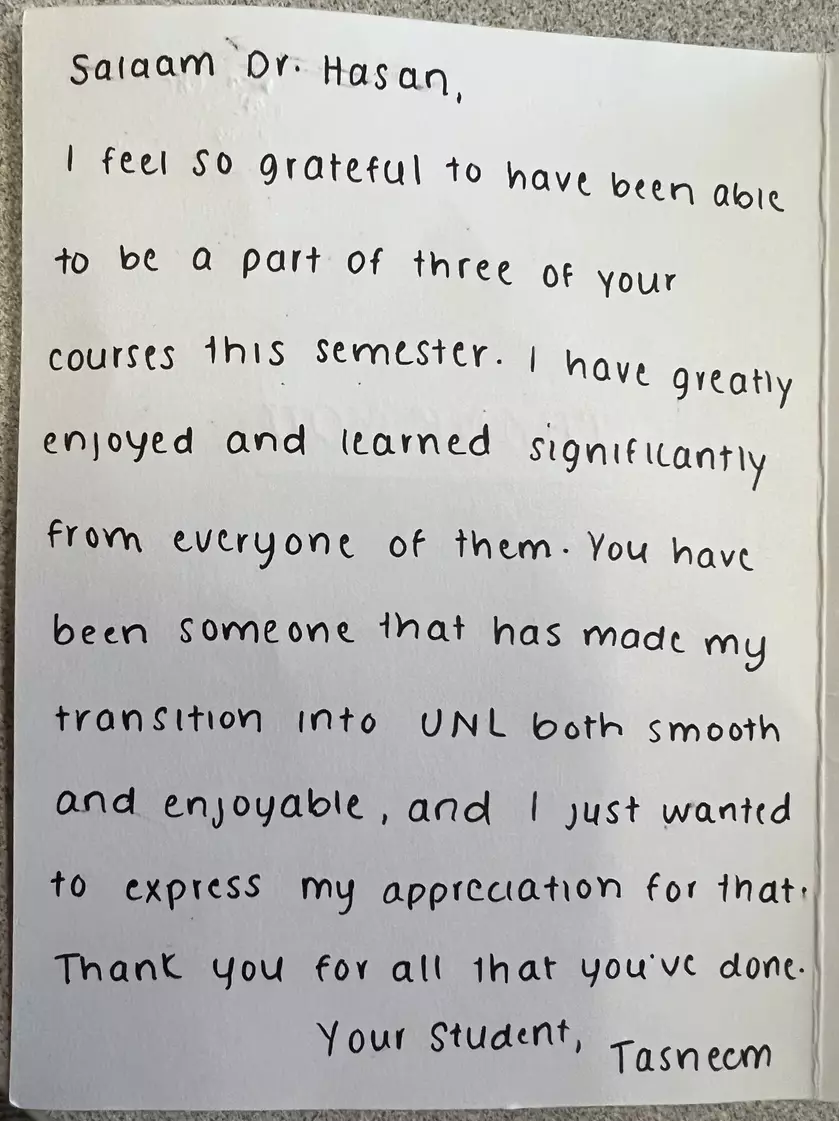 Salaam Dr. Hasan,
I feel so grateful to have been able
to be a part of three of your
courses this semester. I have greatly
enjoyed and learned significantly
from everyone of them. You have
been someone that has made my
transition into UNL both smooth
and enjoyable, and I just wanted
to express my appreciation for that.
Thank you for all that you've done.
Your Student, Tasneem